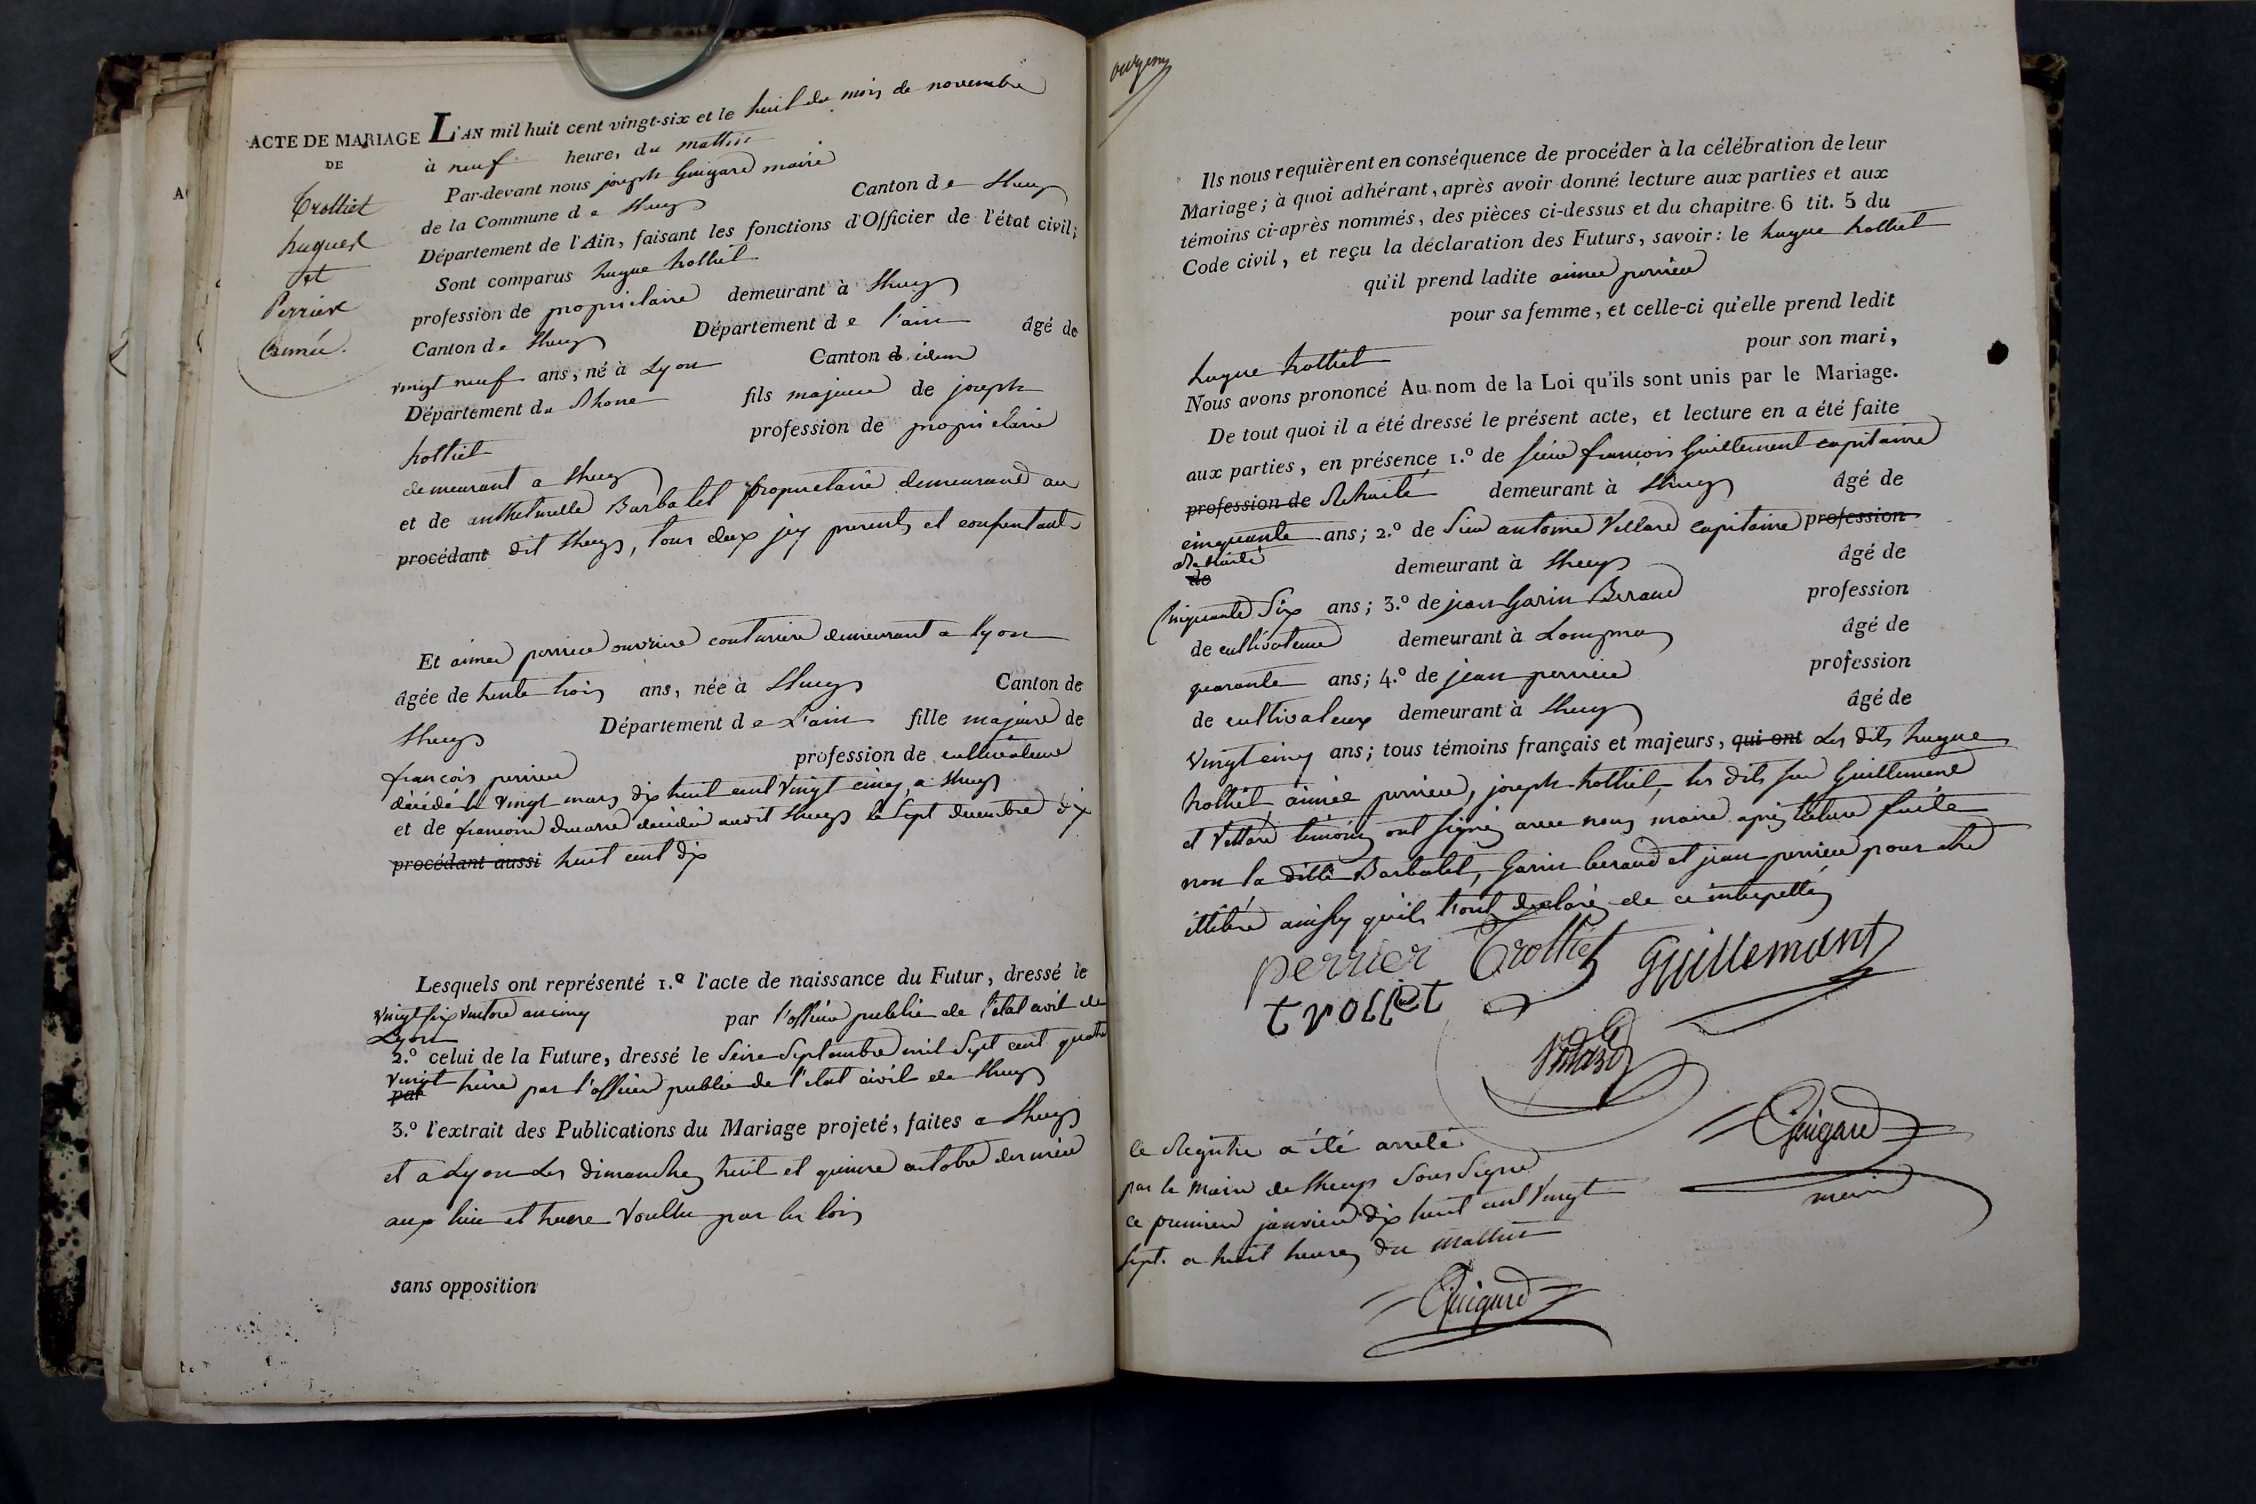 ACTE DE MARIAGE
DE
Trolliet
hugues
Et
Perrier
aimée.
L'AN mil huit cent vingt-six et le huit du mois de novembre
à neuf heures du mattin
Par-devant nous joseph Guigard maire
de la Commune de Lhuys Canton de Lhuys
Département de l'Ain, faisant les fonctions d'Officier de l'état civil;
Sont comparus hugue trolliet
profession de proprietaire demeurant à Lhuys
Canton de Lhuys Département de l'ain âgé de
vingt neuf ans, né à Lyon Canton d. idem
Département du Rhone fils majeur de joseph
trolliet profession de proprietaire
demeurant a Lhuys
et de Barbalet proprietaire demeurand au
procédant dit Lhuys, tous deux jcy presents et consentants
Et aimee perrier ouvriere couturiere demeurant a Lyon
âgée de trente trois ans, née à Lhuys Canton de
Lhuys Département de L'ain fille majeure de
françois perrier profession de cultivateur
décédé le vingt mars dix huit cent vingt cinq, a Lhuys
et de francoise décédée audit Lhuys le sept decembre dix
procédant aussi huit cent dix
Lesquels ont représenté 1.º l'acte de naissance du Futur, dressé le
vingt six an cinq par l'officier public de l'état civil de
Lyon
2.º celui de la Future, dressé le Seize Septembre mil Sept cent quatre
vingt treize par l'officier public de l'etat civil de Lhuys
par
3.º l'extrait des Publications du Mariage projeté, faites a Lhuys
et a Lyon Les dimanches huit et quinze octobre dernier
aux lieu et heure voullu par les lois
sans opposition
Ils nous requièrent en conséquence de procéder à la célébration de leur
Mariage; à quoi adhérant, après avoir donné lecture aux parties et aux
témoins ci-après nommés, des pièces ci-dessus et du chapitre 6 tit. 5 du
Code civil, et reçu la déclaration des Futurs, savoir: le hugue trolliet
qu'il prend ladite aimee perrier
pour sa femme, et celle-ci qu'elle prend ledit
hugue trolliet pour son mari,
Nous avons prononcé Au nom de la Loi qu'ils sont unis par le Mariage.
De tout quoi il a été dressé le présent acte, et lecture en a été faite
aux parties, en présence 1.º de sieur françois Guillemont capitaine
profession de Retraité demeurant à Lhuys âgé de
cinquante ans; 2.º de Sieur antoine Vettard capitaine profession
Retraité
de demeurant à Lhuys âgé de
Cinquante Six ans; 3.º de jean Garin Beraud profession
de cultivateur demeurant à âgé de
quarante ans; 4.º de jean perrier profession
de cultivateur demeurant à Lhuys âgé de
vingt cinq ans; tous témoins français et majeurs, qui ont Les dits hugue
trolliet aimée perrier, joseph trolliet, les dits sieur Guillemont
et Vettard témoins ont signés avec nous maire après lecture faite
non la ditte Barbalet, Garin beraud et jean perrier pour etre
illitéré ainsy qu'ils l'ont declaré de ce interpellés
perrier Trolliet Guillemont
trolliet
Guigard
maire
Ce Registre a été arreté
par le Maire de Lhuys Sous Signé
ce premier janvier dix huit cent vingt
Sept. a huit heures du mattin
Guigard